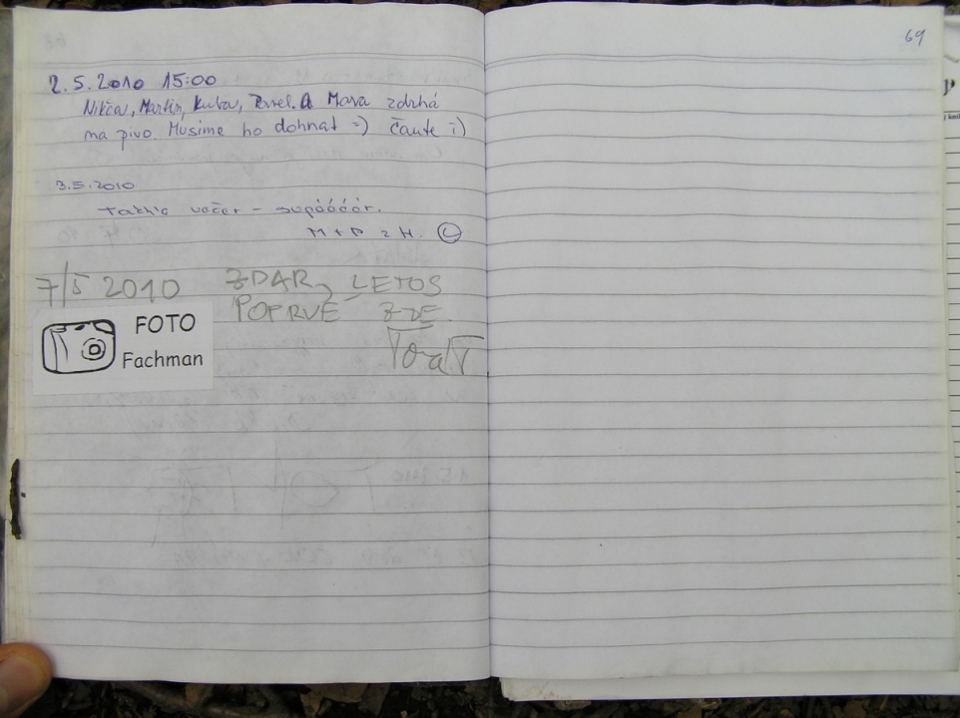 69
2.5.2010 15:00
Nikča, Martin, Kuba, Pavel. A Mara zdrhá
na pivo. Musíme ho dohnat =) čaute =)
3.5.2010
večer - supáááár.
M + P z H.
7/5 2010 ZDAR, LETOS
POPRVÉ ZDE.
FOTO
Fachman